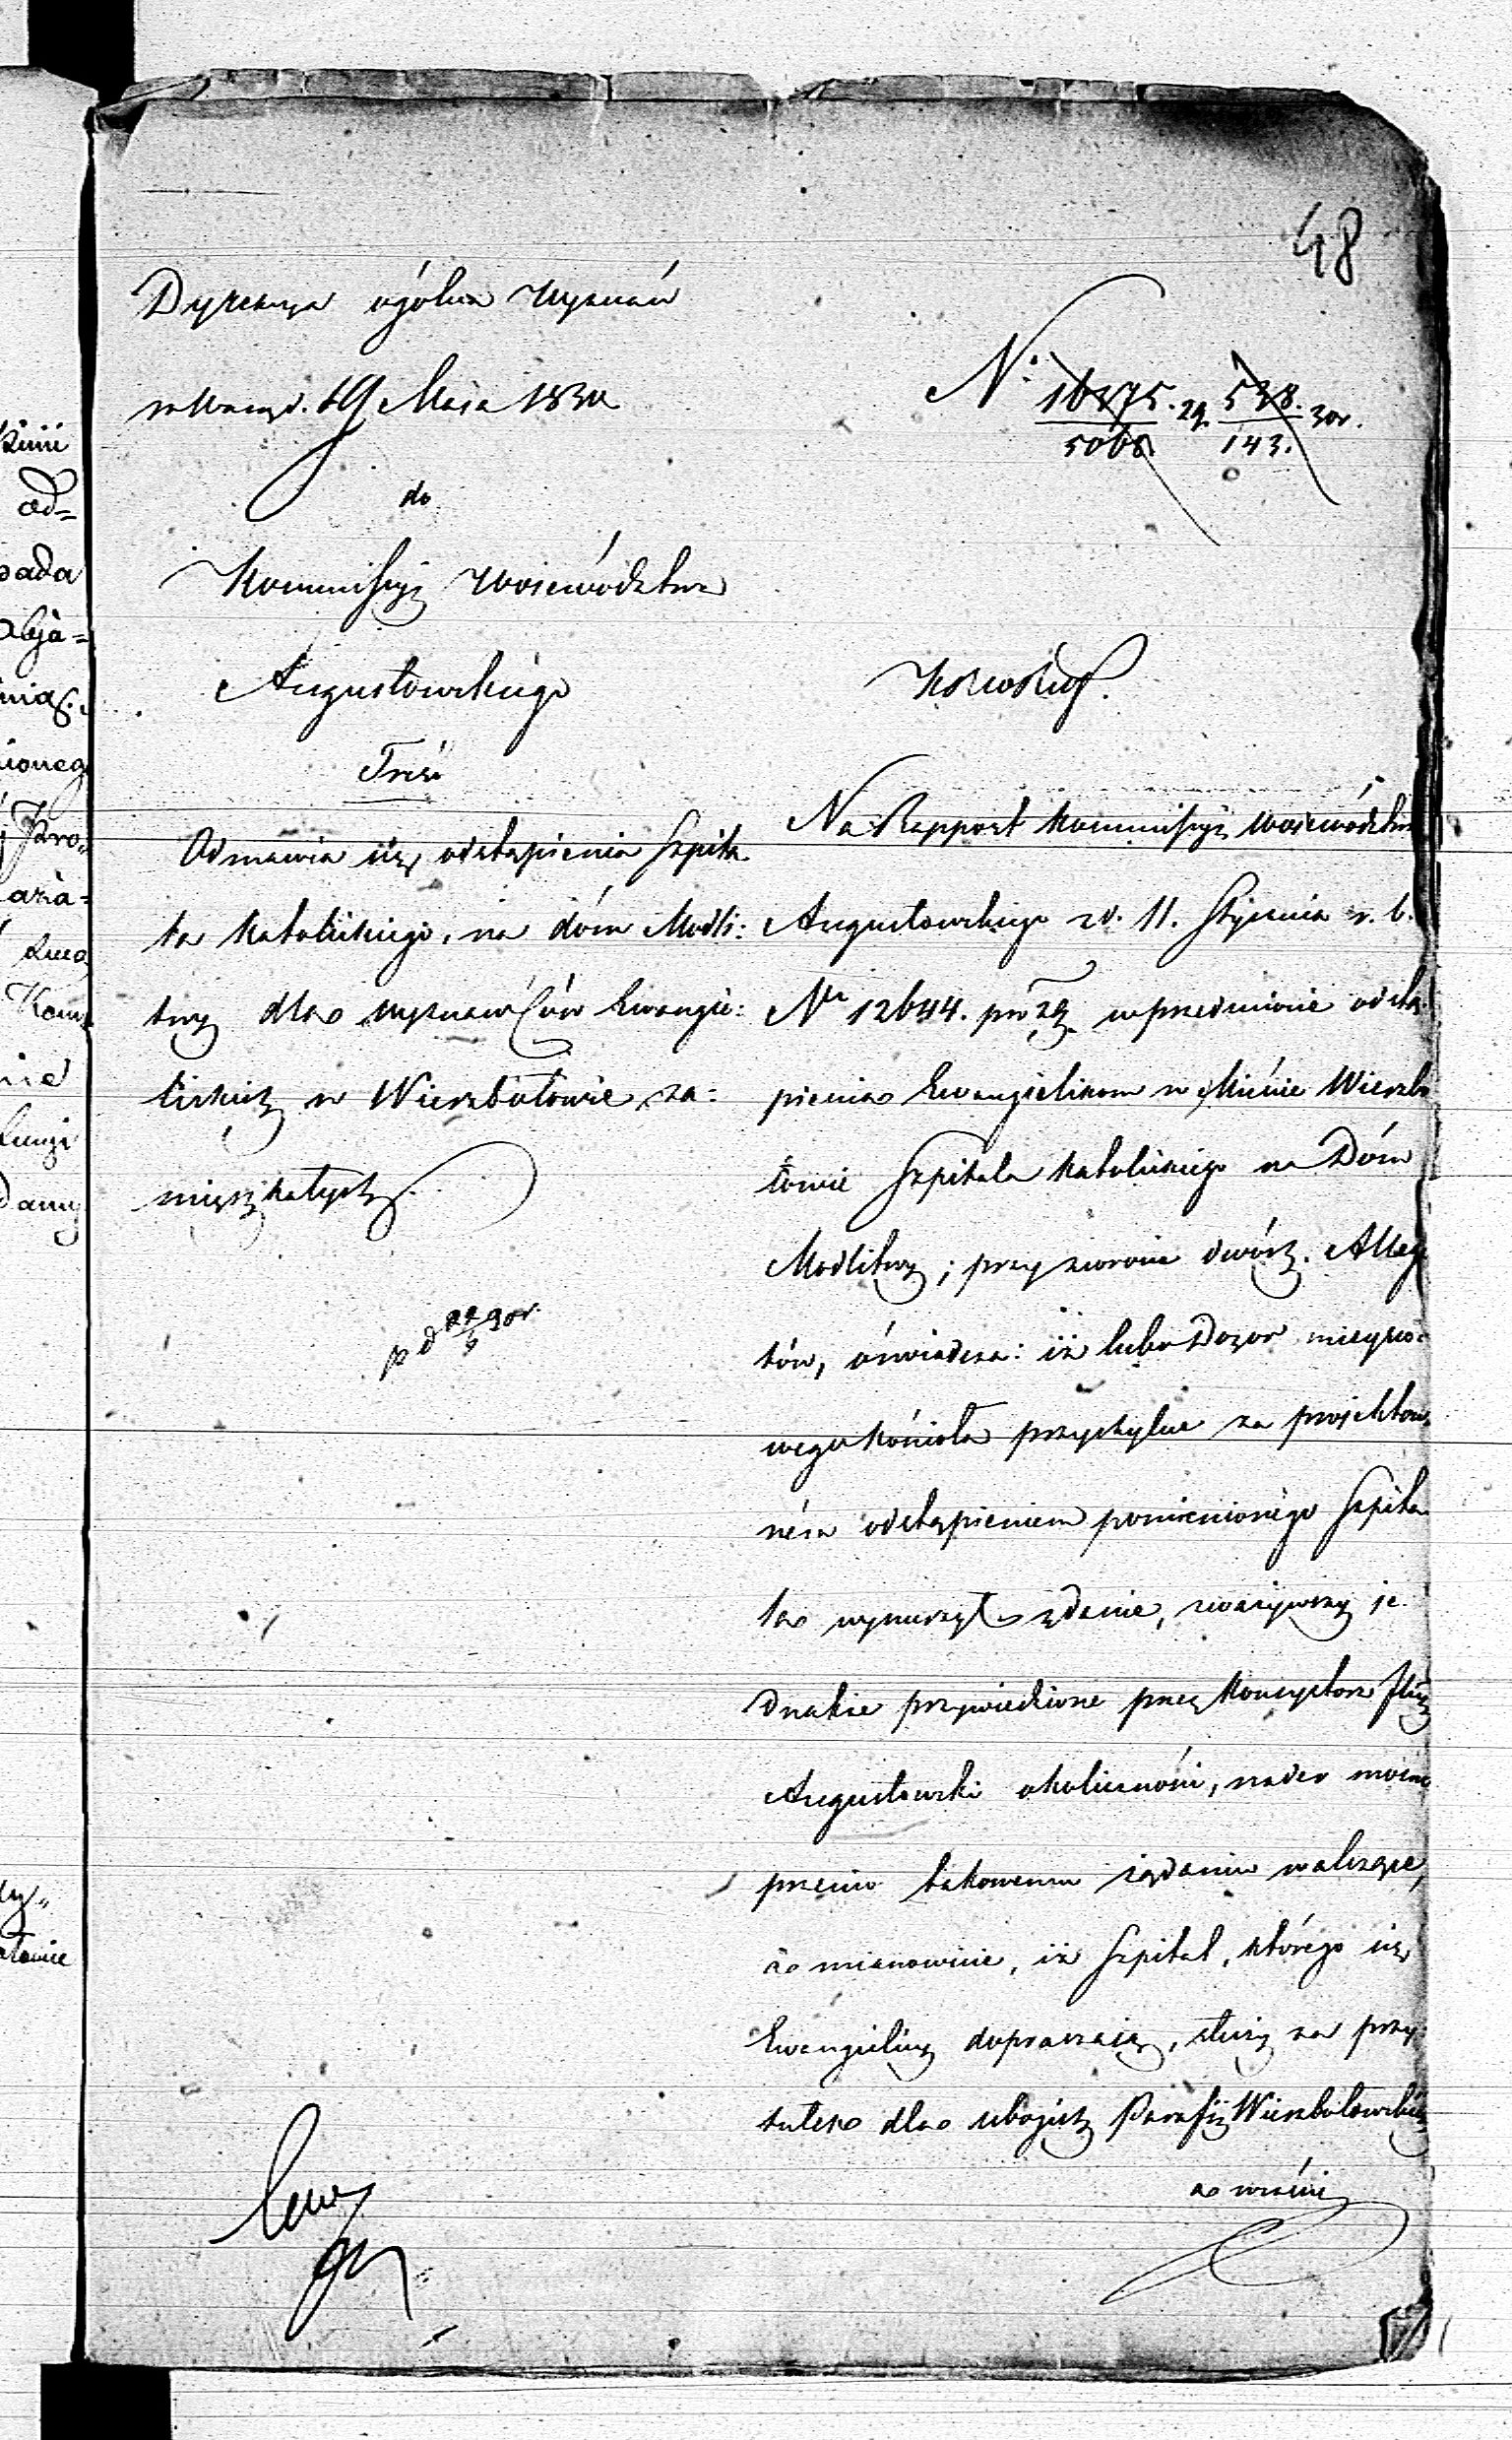 48
Dyrekcya ogólna Wyznań
w Warsz. d. 19 Maja 1830
do
Kommissyi Województwa
Augustowskiego
Treść
Odmawia się odstąpienia Szpita
la Katolickiego, na dóm Modli:
twy dla wyznawców Ewangie:
lickich w Wierzbołowie za:
mięszkałych.
N: 16375. 29. 538. 30r.
5068. 143.
Na Rapport Kommissyi Województwa
Augustowskiego z d. 11. Stycznia r. b.
Nr 12644. w przedmiocie odstą
pienia Ewangielikom w Mieście Wierzbo
łowie Szpitala Katolickiego na Dóm
Modlitwy; przy zwrocie dwóch Allega
tów, oświadcza: iż lubo Dozor miejsco:
wego Kościoła przychylne za projektowa
ném odstąpieniem pomienionégo Szpita
la wynurzył zdanie, zważywszy je
dnakże przywiedzione przez Konsystorz Jlny
Augustowski okoliczności, nader mocno
przeciw takowemu żądaniu walczące,
a mianowicie, iż Szpital, którégo się
Ewangielicy dopraszają, służy za przy:
tułek dla ubogich Parafii Wierzbołowskiéj
a wreście